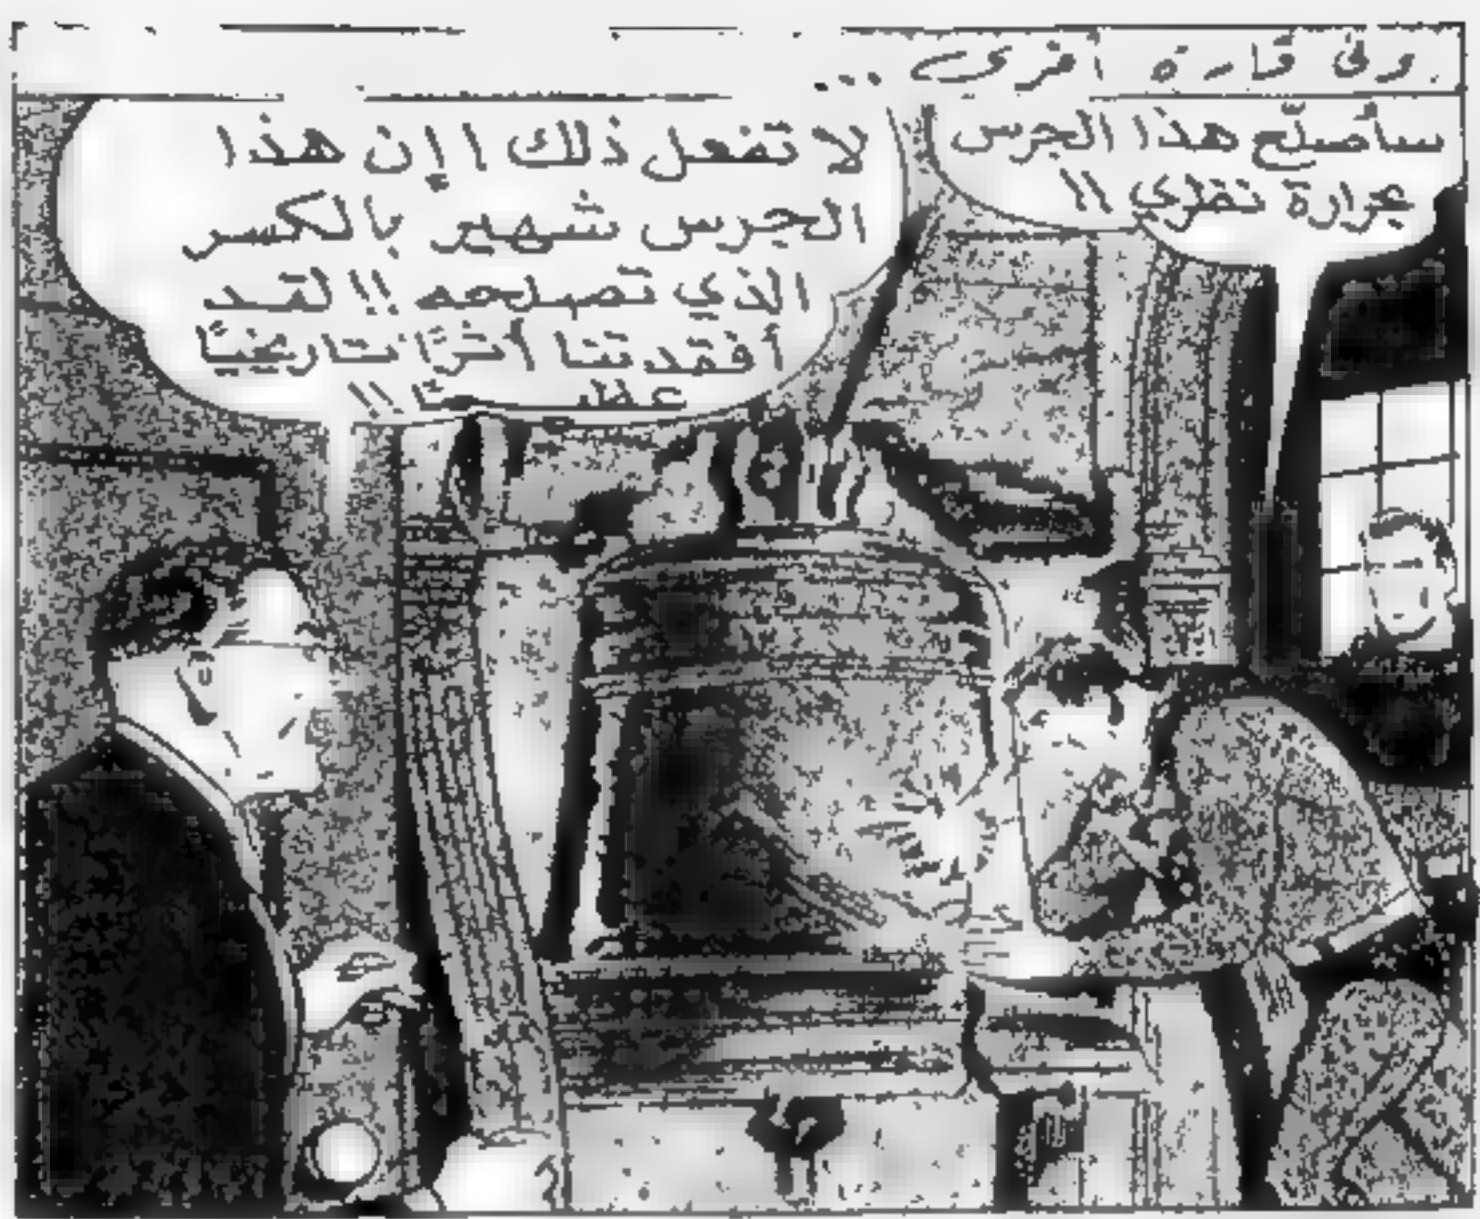 وفى قارة أخرى ...
سأصلّح هذا الجرس
بحرارة نظري !!
لا تفعل ذلك ! إن هذا
الجرس شهير بالكسر
الذي تصلحه !! لقد
أفقدتنا أثرًا تاريخيًا
عظيـــمًا !!